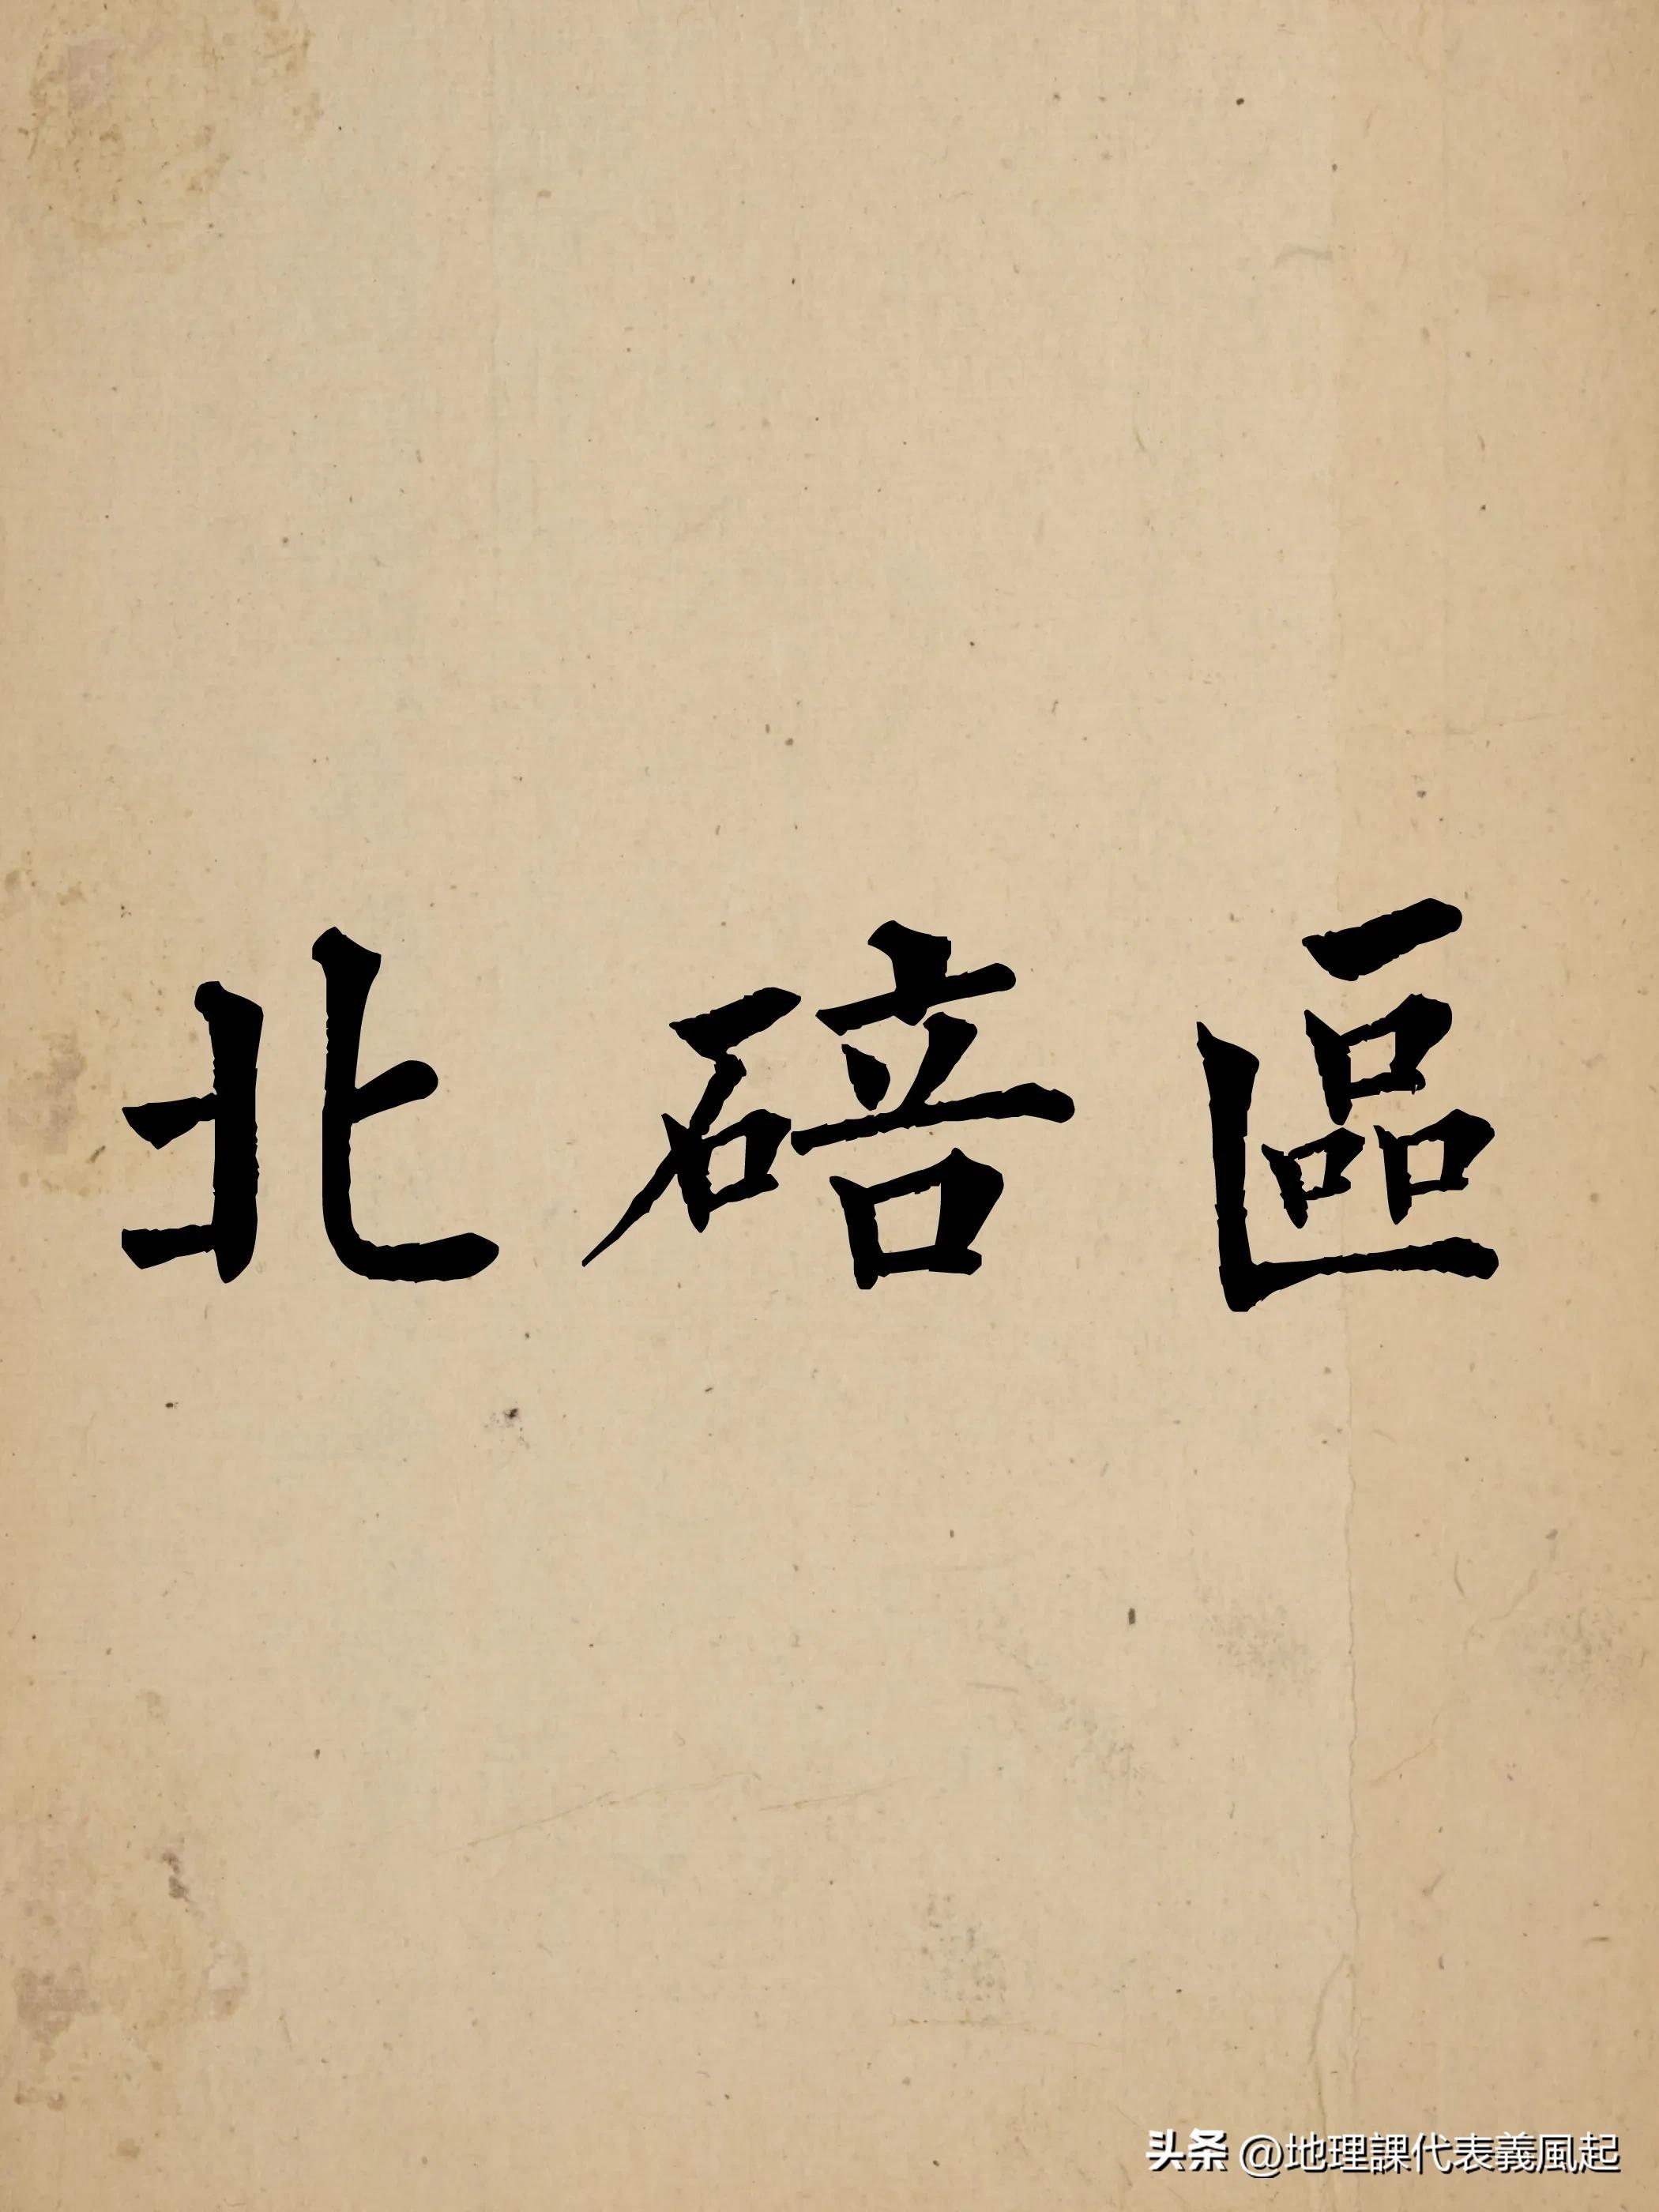 北碚區
头条 @地理課代表義風起